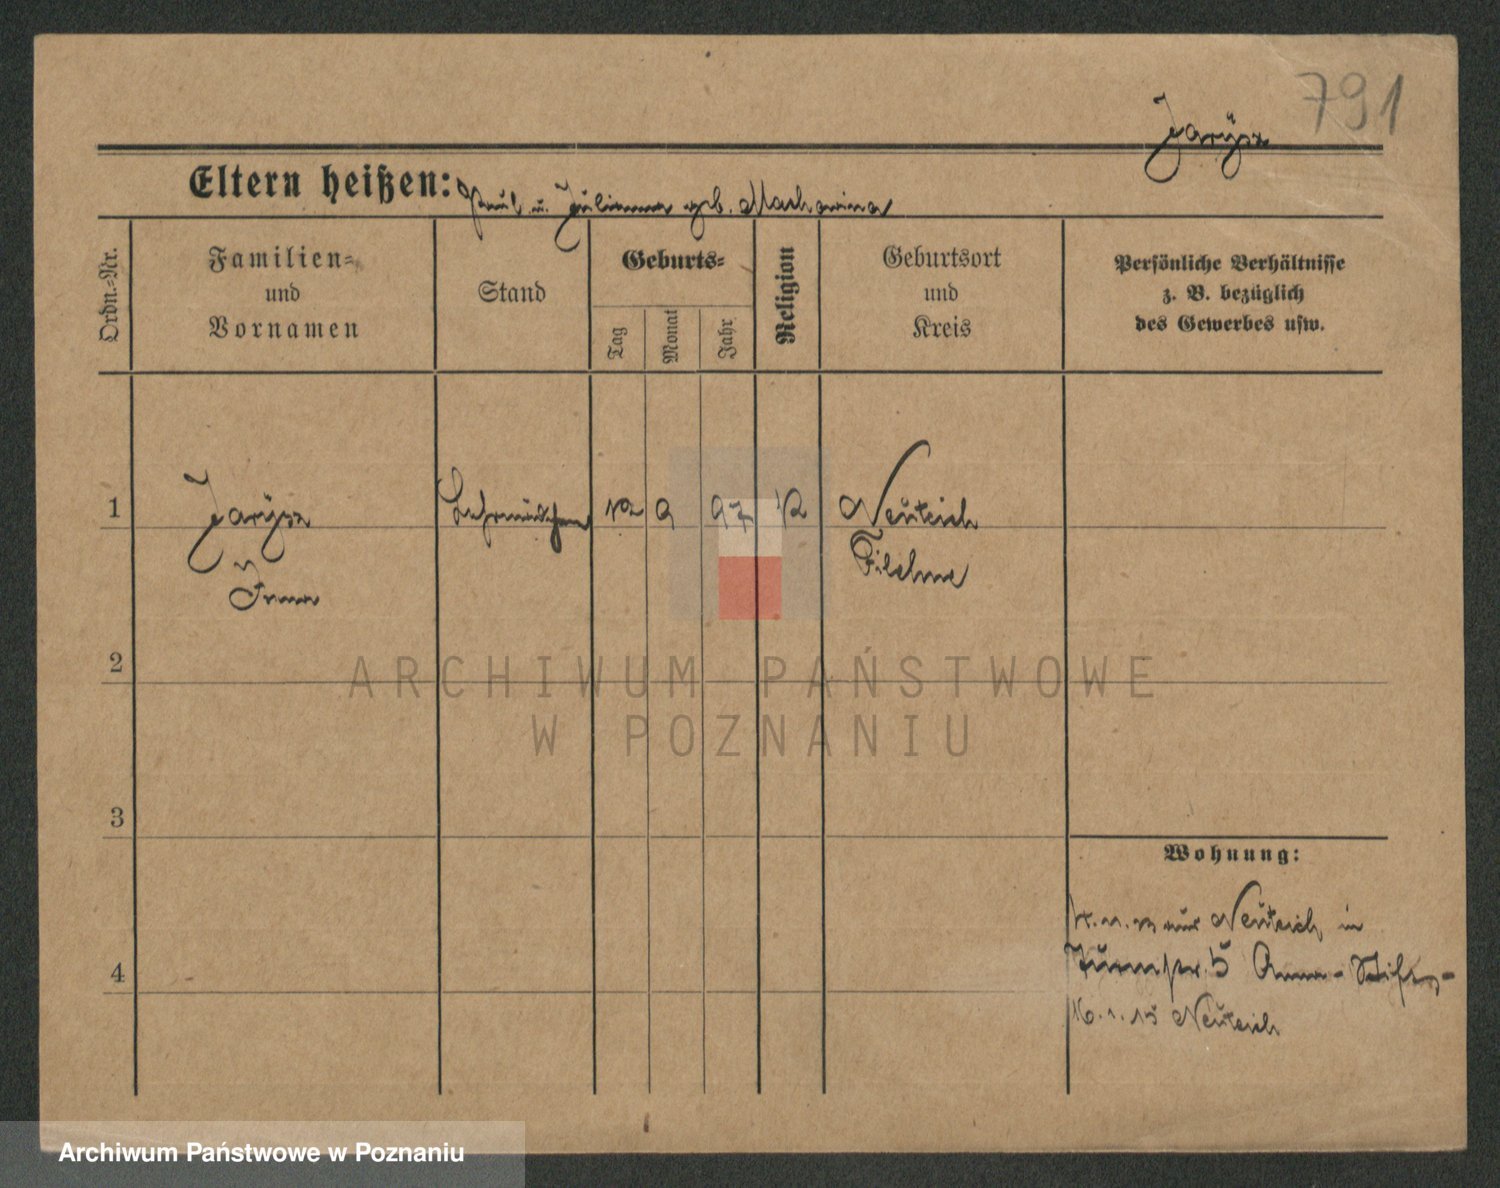 791
Jarysz
Eltern heißen: Paul u. Julianna geb. Machowina
Ordn.-Nr.
Familien-
und
Vornamen
Stand
Geburts-
Tag
Monat
Jahr
Religion
Geburtsort
und
Kreis
Persönliche Verhältnisse
z. B. bezüglich
des Gewerbes usw.
1
Jarysz
Irma
Lehrmädchen
12
9
97
K
Neuteich
Filehne
2
3
4
Wohnung:
4. 11. 13 aus Neuteich in
Turmstr. 5 Anna-Stift
16. 1. 15 Neuteich
ARCHIWUM PAŃSTWOWE
W POZNANIU
Archiwum Państwowe w Poznaniu